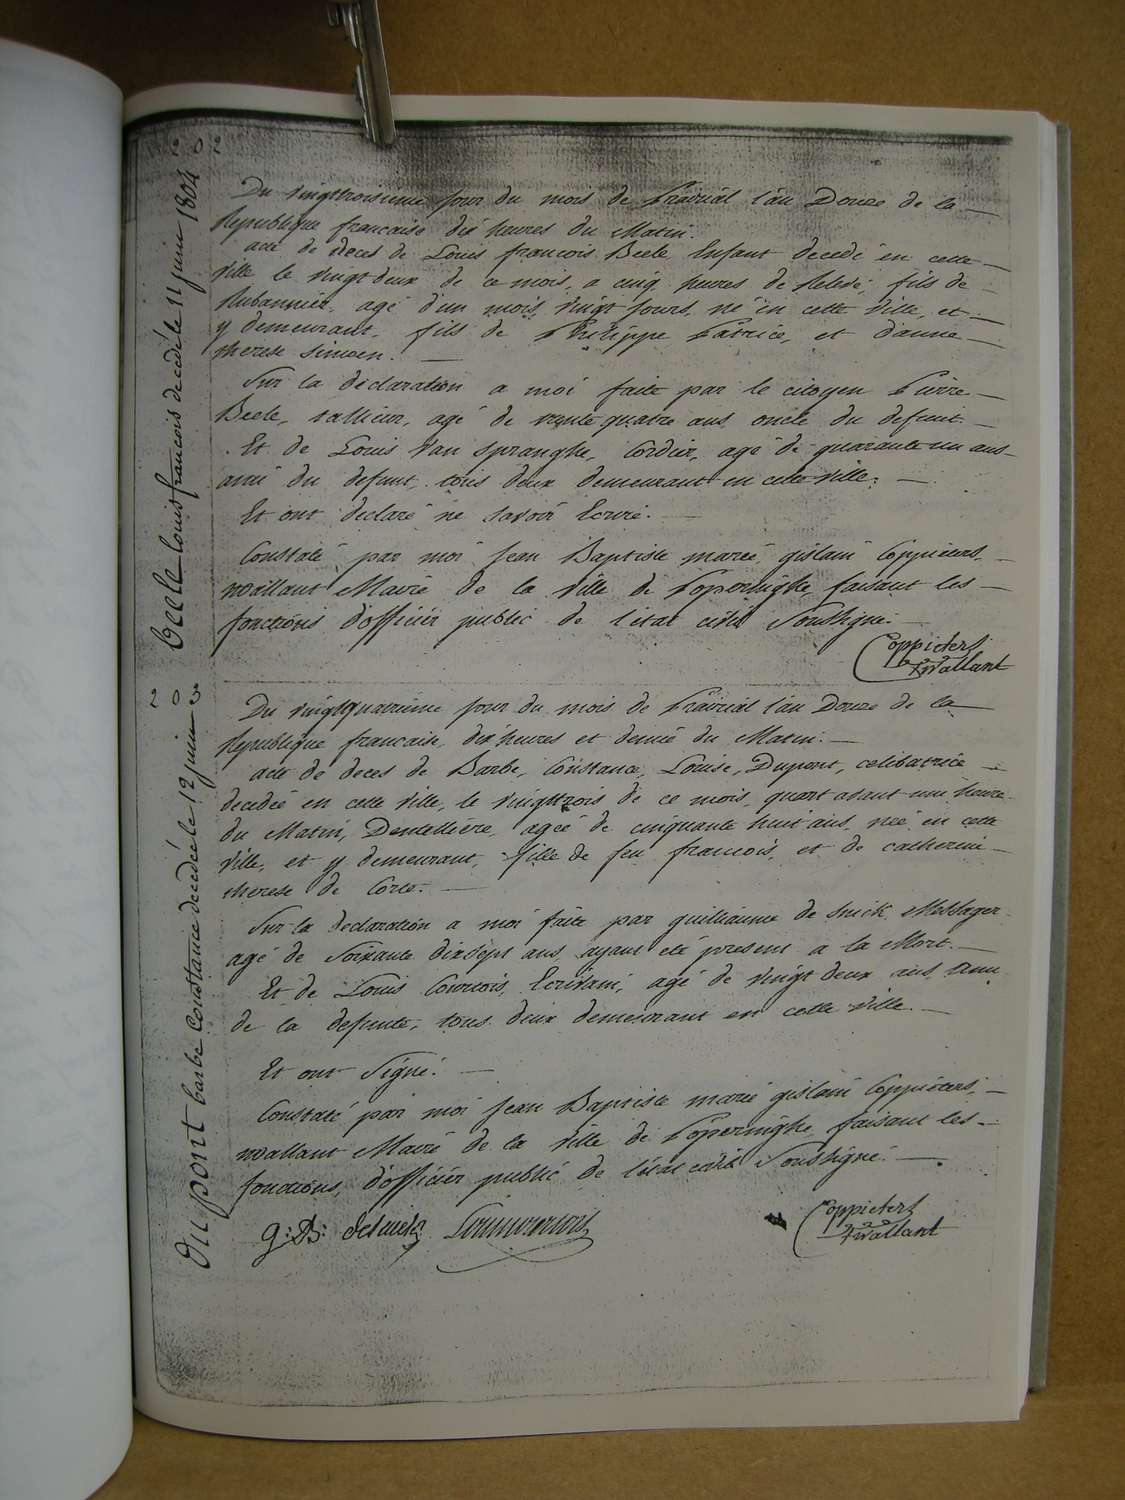 202
Beele Louis francois decedé le 11 juin 1804
Du vingttroisieme jour du mois de Prairial l'an Douze de la
Republique francaise dix heures du Matin.
acte de deces de Louis francois Beele Enfant decedé en cette
ville le vingtdeux de ce mois, a cinq heures de Relevé, fils de
Rubannier, agé d'un mois vingt jours, né en cette ville, et
y demeurant, fils de Philippe Patrice, et d'anne
therese Simoen.
Sur la déclaration a moi faite par le citoyen Pierre
Beele, agé de trente quatre ans oncle du defunt
Et de Louis Van Spranghe, Cordier, agé de quarante un ans
ami du defunt, tous deux demeurant en cette ville.
Et ont declaré ne savoir Ecrire.
Constaté par moi Jean Baptiste marie gislain Coppieters
wallant Maire de la ville de Poperinghe faisant les
fonctions d'officier public de l'etat civil Soussigné.
Coppieters
twallant
203
Du pont barbe Constance decedée le 12 juin
Du vingtquatrieme jour du mois de Prairial l'an Douze de la
Republique francaise, dix heures et demie du Matin.
acte de deces de Barbe, Constance, Louise, Dupont, celibatrice
decedée en cette ville, le vingttrois de ce mois, quart avant une heure
du Matin, Dentellière, agée de cinquante huit ans, née en cette
ville, et y demeurant, fille de feu francois, et de catherine
therese de Corte.
Sur la declaration a moi faite par guilliaume de Snick Messager
agé de Soixante dixsept ans, ayant eté present a la Mort.
Et de Louis Courtois, Ecrivain, agé de vingt deux ans, ami
de la defunte, tous deux demeurant en cette ville.
Et ont Signé.
Constaté par moi Jean Baptiste marie gislain Coppieters,
wallant Maire de la ville de Poperinghe faisant les
fonctions, d'officier public de l'etat civil Soussigné.
Coppieters
twallant